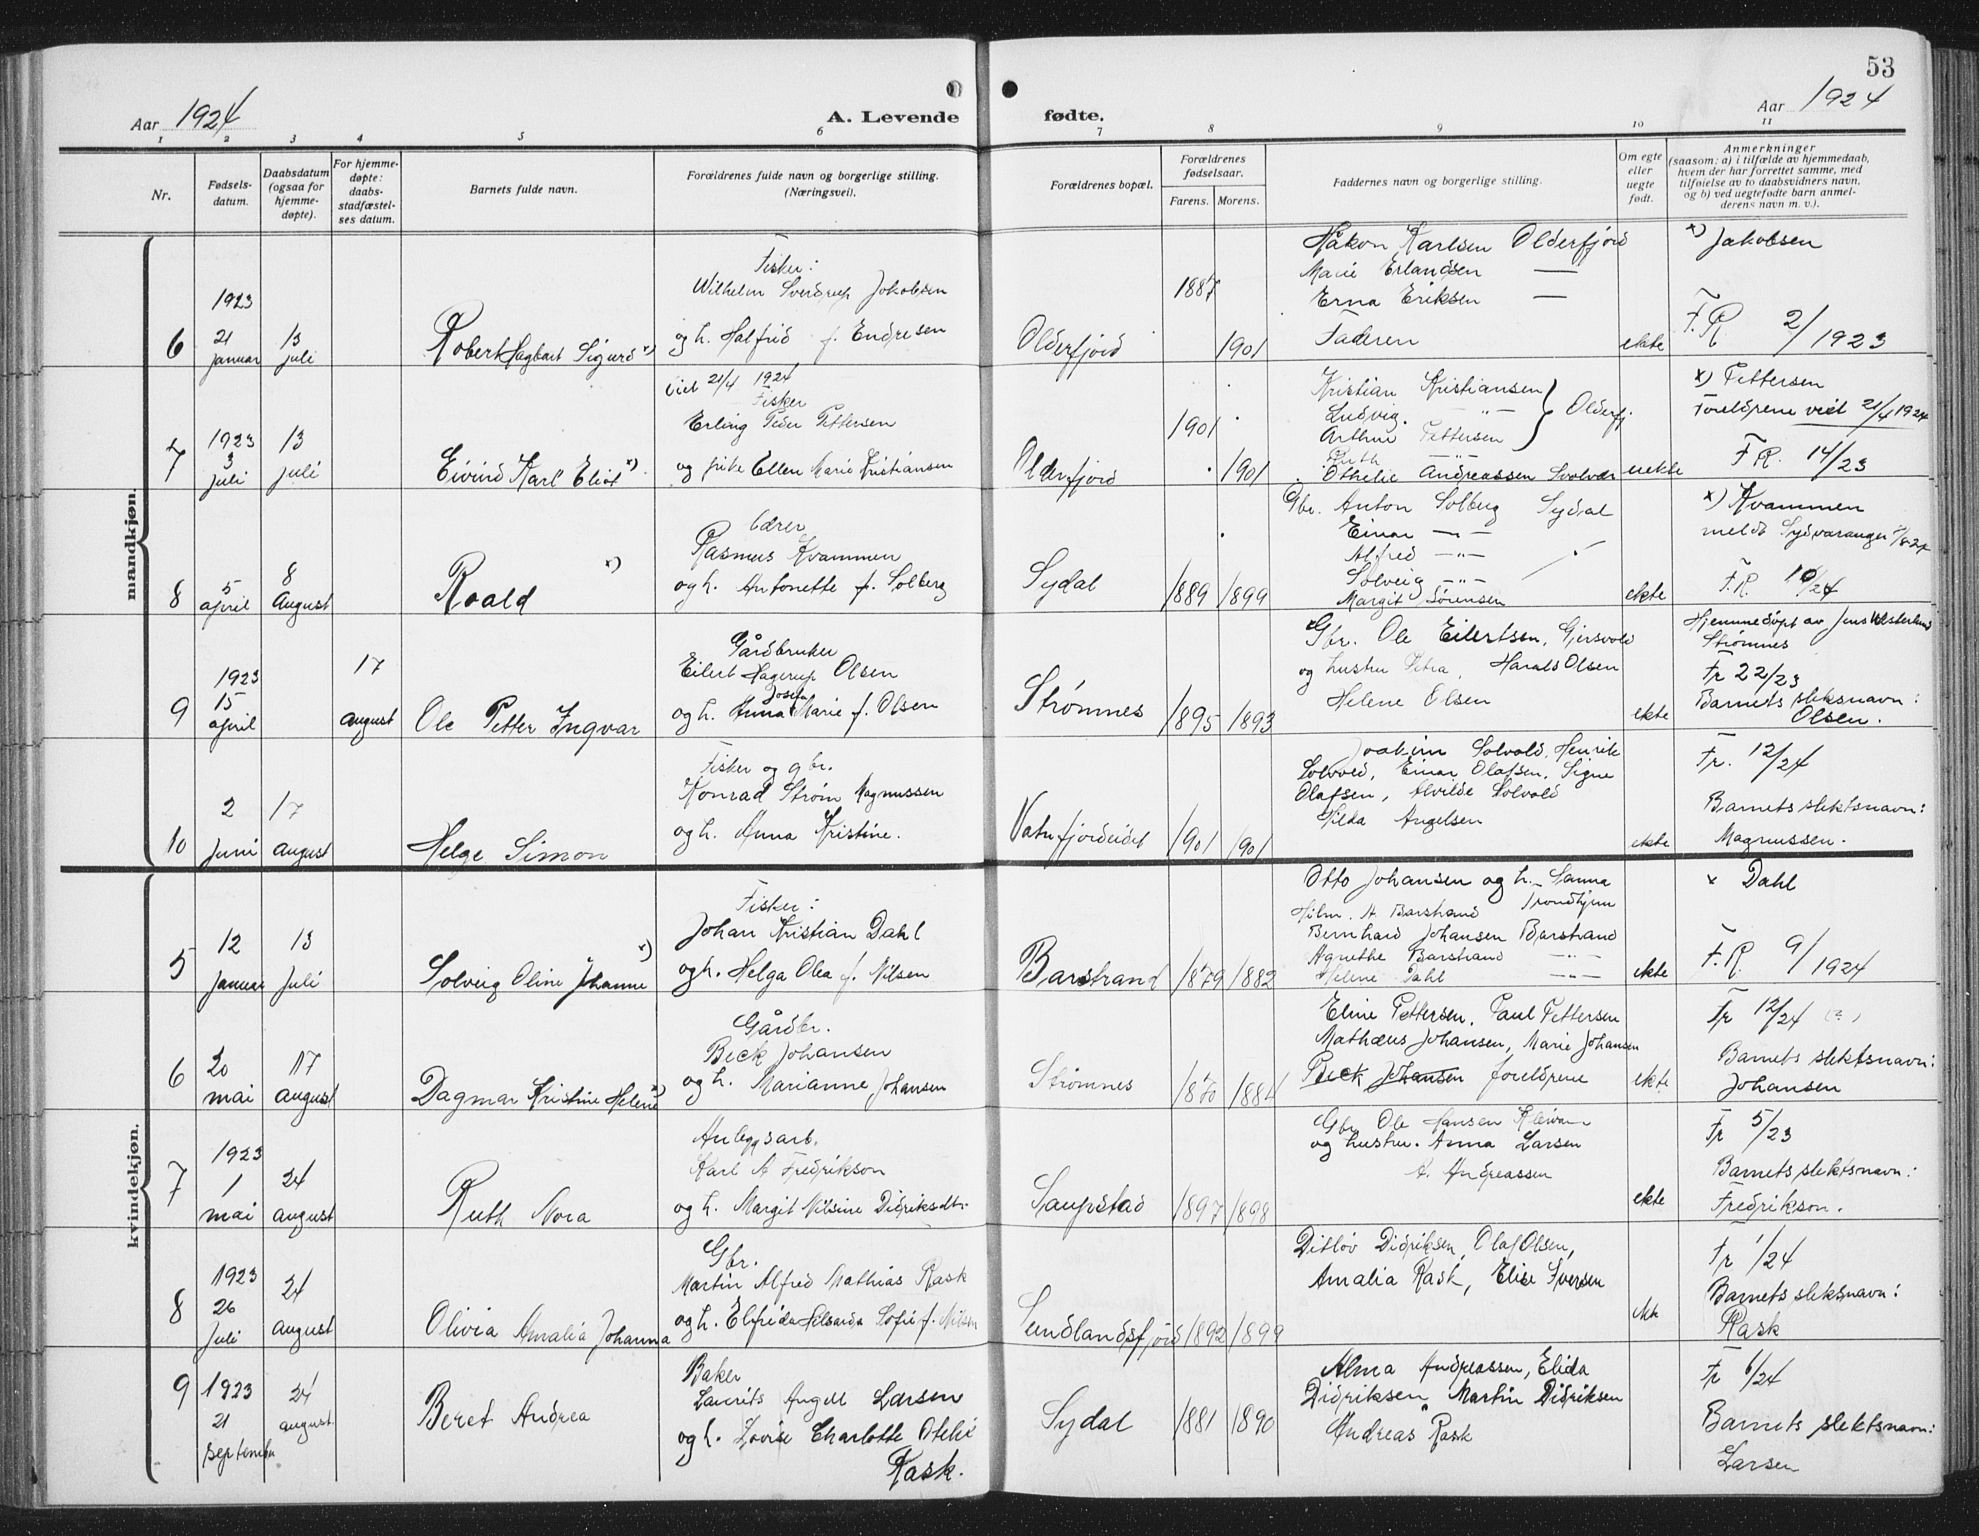 53
Aar 1924
A. Levende fødte.
Aar 1924
1 2 3 4 5 6 7 8 9 10 11
Nr.
Fødsels-
datum.
Daabsdatum
(ogsaa for
hjemme-
døpte).
For hjemme-
døpte:
daabs-
stadfæstel-
ses datum.
Barnets fulde navn.
Forældrenes fulde navn og borgerlige stilling.
(Næringsvei).
Forældrenes bopæl.
Forældrenes
fødselsaar.
Farens. Morens.
Faddernes navn og borgerlige stilling.
Om egte
eller
uegte
født.
Anmerkninger
(saasom: a) i tilfælde av hjemmedaab,
hvem der har forrettet samme, med
tilføielse av to daabsvidners navn,
og b) ved uegtefødte barn anmel-
derens navn m. v.).
mandkjøn.
6
1923
21
januar
13
juli
Robert Hagbart Sigurd x)
Fisker:
Wilhelm Sverdrup Jakobsen
og h. Halfrid f. Endresen
Olderfjord
1887
1901
Håkon Karlsen Olderfjord
Marie Erlandsen —
Erna Eriksen —
Faderen
ekte
x) Jakobsen
F.R. 2/1923
7
1923
3
juli
13
juli
Eivind Karl Eliot x)
viet 21/4 1924
Fisker
Erling Peder Pettersen
og pike Ellen Marie Kristiansen
Olderfjord
1901
1901
Kristian Kristiansen
Ludvig —"—
Arthur Pettersen
Olderfj.
Ruth —"—
Othelie Andreassen Svolvær
uekte
x) Pettersen
Foreldrene viet 21/4 1924
F.R. 14/23
8
5
april
8
August
Roald x)
Lærer
Rasmus Kvammen
og h. Antonette f. Solberg
Sydal
1889
1899
Gbr. Anton Solberg Sydal
Einar —"—
Alfred —"—
Solveig —"—
Margit Sørensen
ekte
x) Kvammen
meldt Sydvaranger
F.R. 10/24
9
1923
15
april
17
august
Ole Petter Ingvar
Gårdbruker
Eilert Hagerup Olsen
og h. Anna Josefa Marie f. Olsen
Strømnes
1895
1893
Gbr. Ole Eilertsen, Gjersvold
og hustru Petra, Harald Olsen
Helene Olsen
ekte
Hjemmedøpt av Jens Westerlund
Strømnes
Fr 22/23
Barnets slektsnavn:
Olsen.
10
2
juni
17
august
Helge Simon
Fisker og gbr.
Konrad Strøm Magnussen
og h. Anna Kristine.
Vatnfjordeidet
1901
1901
Joakim Solvold, Henrik
Solvold, Einar Olafsen, Signe
Olafsen, Alvilde Solvold
Hilda Angelsen
ekte
Fr. 12/24
Barnets slektsnavn:
Magnussen.
kvindekjøn.
5
12
januar
13
Juli
Solveig Oline Johanne x)
Fisker:
Johan Kristian Dahl
og h. Helga Olea f. Nilsen
Barstrand
1879
1882
Otto Johansen og h. Sanna
Hilm. A Barstrand Trondhjem
Bernhard Johansen Barstrand
Agnethe Barstrand —"—
Helene Dahl —"—
ekte
x Dahl
F.R. 9/1924
6
20
mai
17
august
Dagmar Kristine Helene x)
Gårdbr.
Beck Johansen
og h. Marianne Johansen
Strømnes
1870
1884
Eline Pettersen, Paul Pettersen
Mathæus Johansen, Marie Johansen
Beck Johansen foreldrene
ekte
Fr 12/24
Barnets slektsnavn:
Johansen
7
1923
1
mai
24
august
Ruth Nora
Anleggsarb.
Karl A Fredrikson
og h. Margit Nilsine Didriksdtr.
Saupstad
1897
1898
Gbr Ole Hansen Kleivan
og hustru. Anna Larsen
A. Andreassen
ekte
Fr 5/23
Barnets slektsnavn:
Fredrikson.
8
1923
26
Juli
24
august
Olivia Amalia Johanna
Gbr.
Martin Alfred Mathias Rask
og h. Elfrida Hilsarda Sofie f. Nilsen
Sundlandsfjord
1892
1899
Ditløv Didriksen, Olaf Olsen,
Amalia Rask, Elise Iversen
ekte
Fr 1/24
Barnets slektsnavn:
Rask
9
1923
21
september
24
august
Beret Andrea
Baker
Laurits Angell Larsen
og h. Lovise Charlotte Otelie
Rask.
Sydal
1881
1890
Alma Andreassen, Elida
Didriksen, Martin Didriksen
Andreas Rask
Fr 6/24
Barnets slektsnavn:
Larsen